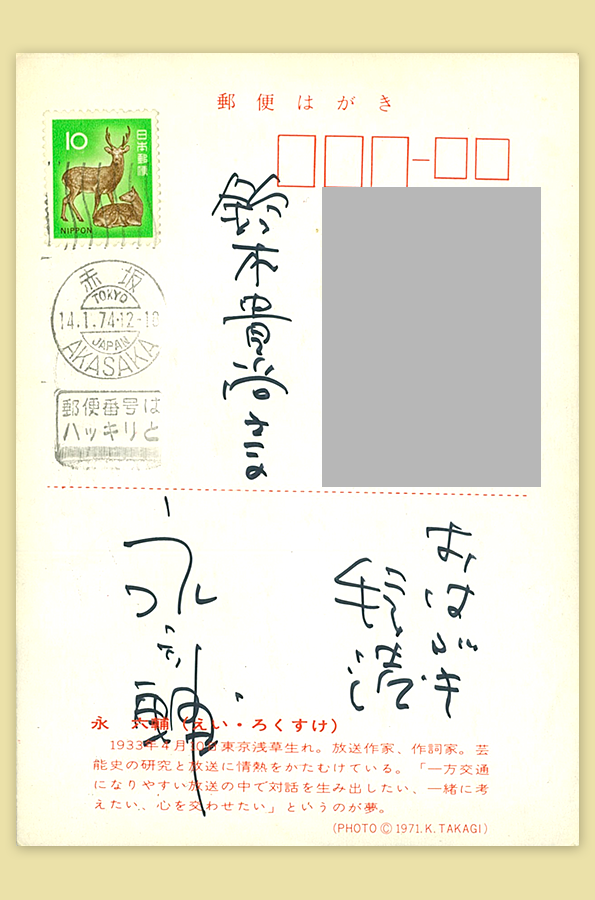 郵便はがき
10
日本郵便
NIPPON
赤坂
TOKYO
14.1.74.12-18
JAPAN
AKASAKA
郵便番号は
ハッキリと
鈴木貴尚さま
おはがき
拝読
永六輔
永 六輔(えい・ろくすけ)
1933年4月10日東京浅草生れ。放送作家、作詞家。芸
能史の研究と放送に情熱をかたむけている。「一方交通
になりやすい放送の中で対話を生み出したい、一緒に考
えたい、心を交わせたい」というのが夢。
(PHOTO © 1971. K. TAKAGI)